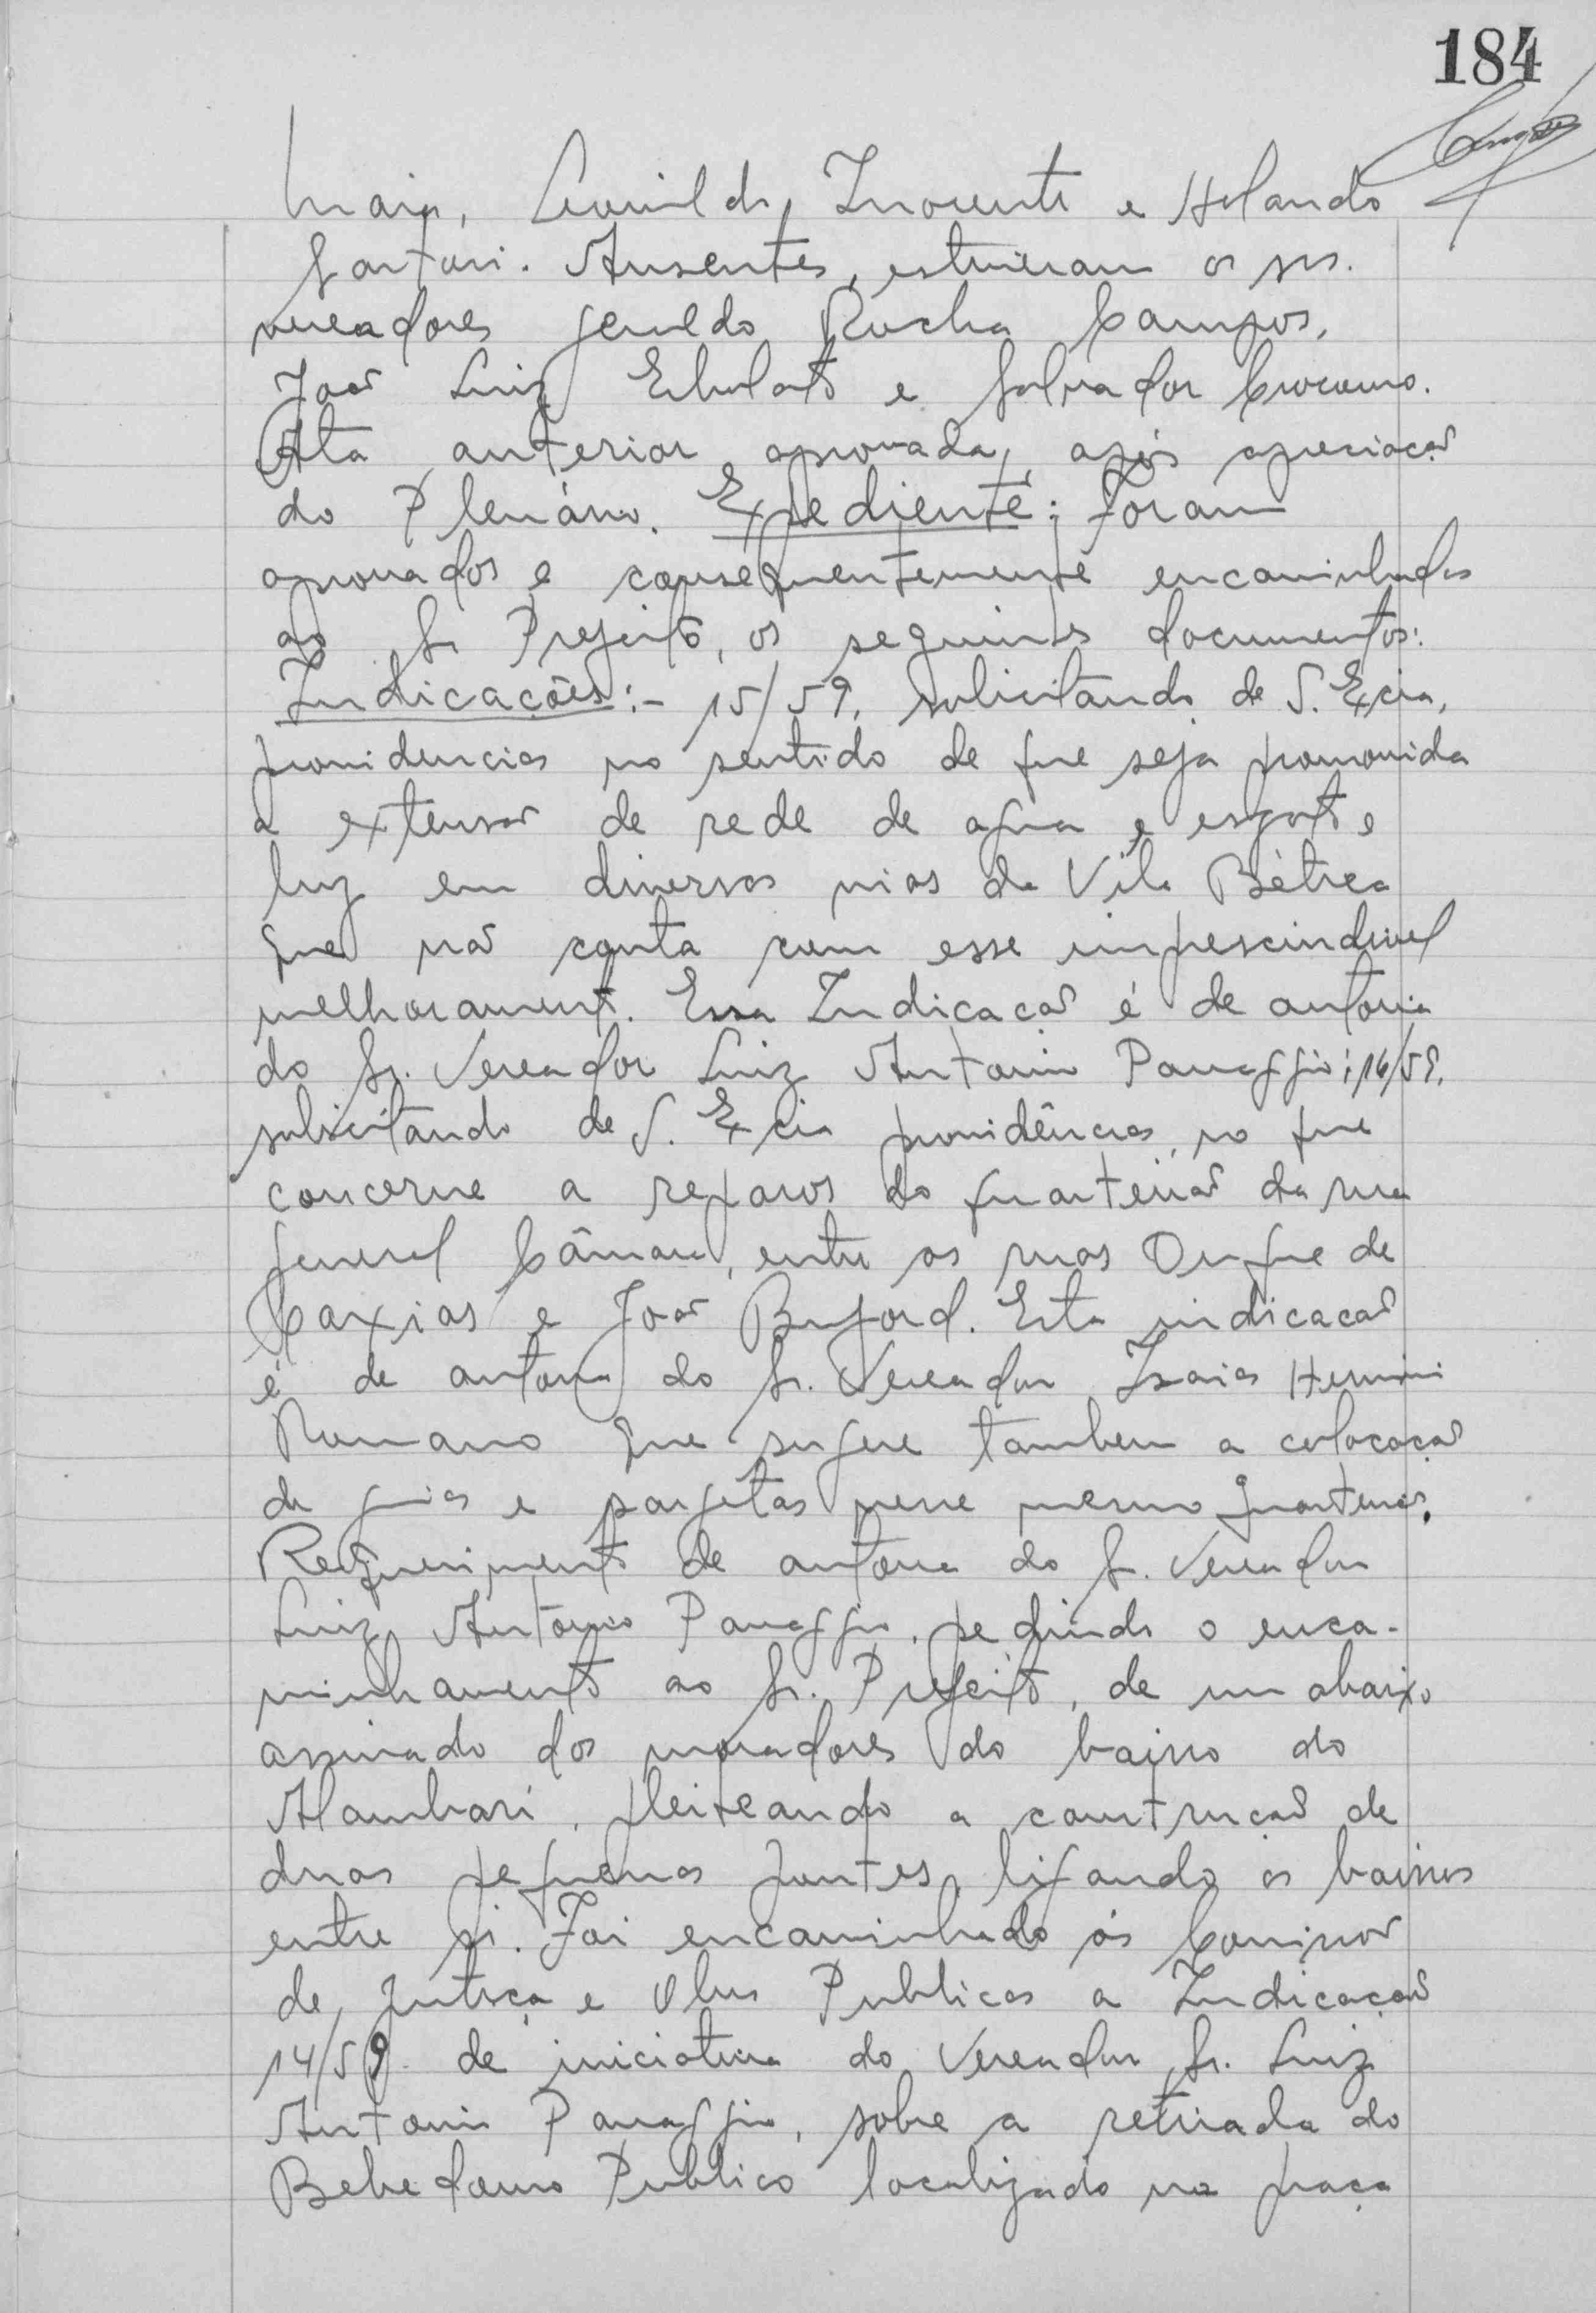 184
Maia, Leonildo Inocenti e Holando
Sartori. Ausentes, estiveram os srs.
vereadores Geraldo Rocha Campos,
João Luiz e Salvador
Ata anterior aprovada, após apreciação
do Plenário. Expediente: Foram
aprovados e consequentemente encaminhados
ao Sr Prefeito, os seguintes documentos:
Indicações:- 15/59, solicitando de S. Excia,
providencias no sentido de que seja promovida
a extensão de rede de agua e esgoto e
luz em diversas vias da Vila Bética
que não conta com esse impescindivel
melhoramento. Essa Indicação é de autoria
do Sr. Vereador Luiz Antonio Panaggio; 16/59,
solicitando de S. Excia providências, no que
concerne a reparos do quarteirão da rua
General Câmara, entre as ruas Duque de
Caxias e João Buford. Esta indicação
é de autoria do Sr. Vereador Izaias Hermini
Romano que sugere tambem a colocação
de guias e sarjetas nesse mesmo quarteirão.
Requerimento de autoria do Sr. Vereador
Luiz Antônio Panaggio, pedindo o enca-
minhamento ao Sr. Prefeito, de um abaixo
assinado dos moradores do bairro do
Alambari, pleiteando a construção de
duas pequenas pontes, ligando os bairros
entre si. Foi encaminhado ás Comissão
de Justiça e Obras Publicas a Indicação
14/59 de iniciativa do Vereador Sr. Luiz
Antonio Panaggio, sobre a retirada do
Bebedouro Publico localizado na praça